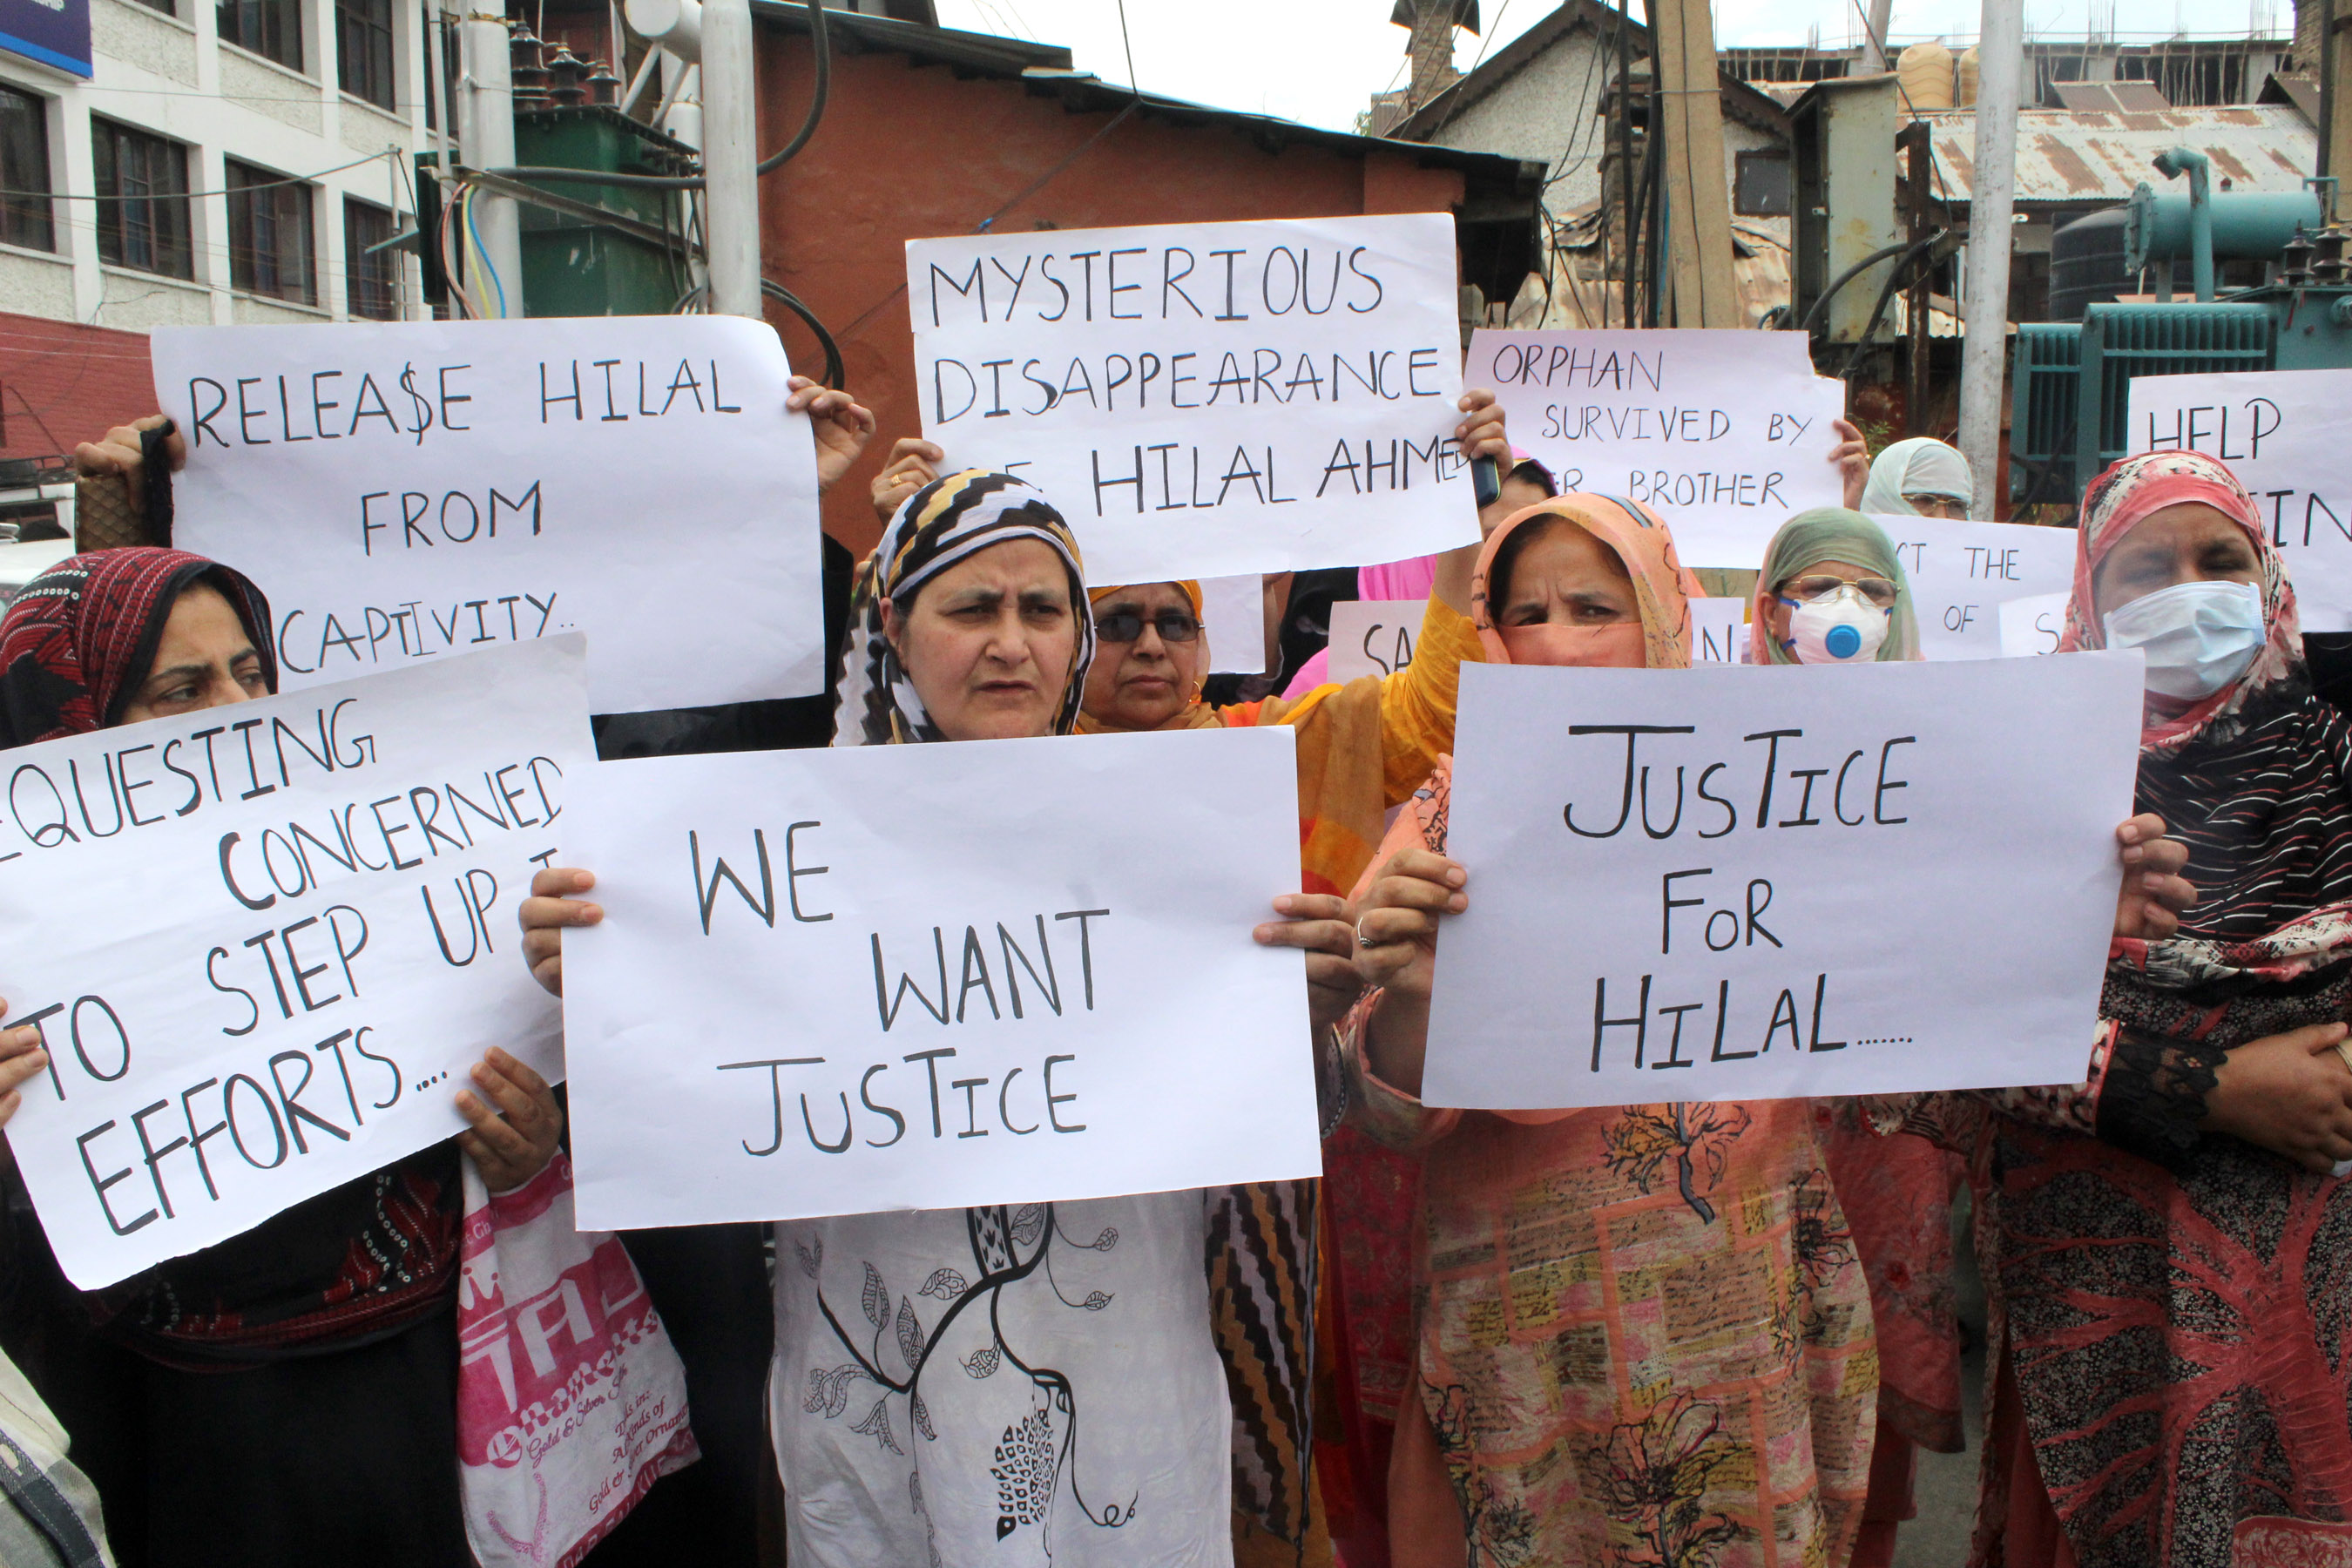 RELEA$E HILAL
FROM
CAPTIVITY..
MYSTERIOUS
DISAPPEARANCE
HILAL AHMED
ORPHAN
SURVIVED BY
BROTHER
HELP
THE
OF
EQUESTING
CONCERNED
TO STEP UP
EFFORTS....
WE
WANT
JUSTICE
JUSTICE
FOR
HILAL.......
Gold & Silver
All kinds of
Gold &